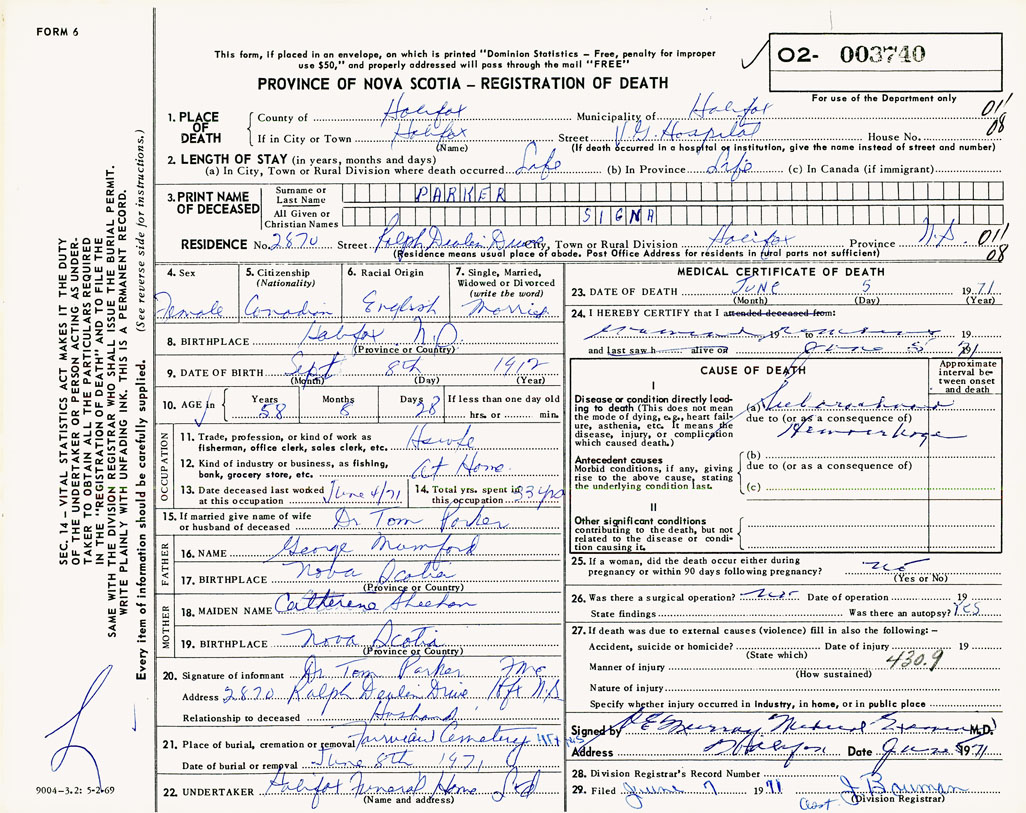 FORM 6
This form, if placed in an envelope, on which is printed "Dominion Statistics – Free, penalty for improper
use $50," and properly addressed will pass through the mail "FREE"
02- 003740
PROVINCE OF NOVA SCOTIA – REGISTRATION OF DEATH
For use of the Department only
1. PLACE OF DEATH
County of Halifax Municipality of Halifax 011
If in City or Town Halifax Street V.G. Hospital House No. 08
(Name) (If death occurred in a hospital or institution, give the name instead of street and number)
2. LENGTH OF STAY (in years, months and days)
(a) In City, Town or Rural Division where death occurred Life (b) In Province Life (c) In Canada (if immigrant)
3. PRINT NAME OF DECEASED
Surname or Last Name PARKER
All Given or Christian Names SIGNA
RESIDENCE No. 2870 Street Ralph Devlin Drive City, Town or Rural Division Halifax Province N.S. 011
(Residence means usual place of abode. Post Office Address for residents in rural parts not sufficient) 08
4. Sex
Female
5. Citizenship
(Nationality)
Canadian
6. Racial Origin
English
7. Single, Married,
Widowed or Divorced
(write the word)
Married
8. BIRTHPLACE Halifax N.S.
(Province or Country)
9. DATE OF BIRTH Sept 8th 1912
(Month) (Day) (Year)
10. AGE in Years 58 Months 8 Days 28 If less than one day old
hrs. or min.
OCCUPATION
11. Trade, profession, or kind of work as
fisherman, office clerk, sales clerk, etc. Hswfe
12. Kind of industry or business, as fishing,
bank, grocery store, etc. At Home
13. Date deceased last worked
at this occupation June 4/71
14. Total yrs. spent in
this occupation 33 yrs
15. If married give name of wife
or husband of deceased Dr Tom Parker
FATHER
16. NAME George Mumford
17. BIRTHPLACE Nova Scotia
(Province or Country)
MOTHER
18. MAIDEN NAME Catherene Sheehan
19. BIRTHPLACE Nova Scotia
(Province or Country)
20. Signature of informant Dr Tom Parker
Address 2870 Ralph Devlin Drive Hfx N.S
Relationship to deceased Husband
21. Place of burial, cremation or removal Fairview Cemetery Hfx NS
Date of burial or removal June 8th 1971
22. UNDERTAKER Halifax Funeral Home Ltd
(Name and address)
MEDICAL CERTIFICATE OF DEATH
23. DATE OF DEATH JUNE 5 1971
(Month) (Day) (Year)
24. I HEREBY CERTIFY that I attended deceased from:
19 to 19
and last saw h alive on June 5 71
CAUSE OF DEATH
Approximate
interval be-
tween onset
and death
I
Disease or condition directly lead-
ing to death (This does not mean
the mode of dying, e.g., heart fail-
ure, asthenia, etc. It means the
disease, injury, or complication
which caused death.)
(a) Subarachnoid
due to (or as a consequence of)
Hemorrhage
Antecedent causes
Morbid conditions, if any, giving
rise to the above cause, stating
the underlying condition last.
(b)
due to (or as a consequence of)
(c)
II
Other significant conditions
contributing to the death, but not
related to the disease or condi-
tion causing it.
25. If a woman, did the death occur either during
pregnancy or within 90 days following pregnancy? No
(Yes or No)
26. Was there a surgical operation? No Date of operation 19
State findings Was there an autopsy? YES
27. If death was due to external causes (violence) fill in also the following: –
Accident, suicide or homicide? Date of injury 19
(State which) 430.9
Manner of injury
(How sustained)
Nature of injury
Specify whether injury occurred in industry, in home, or in public place
Signed by Murray Medical Examiner M.D.
Address Halifax Date June 5 1971
28. Division Registrar's Record Number
29. Filed June 7 1971 J. Bauman
(Division Registrar)
SEC. 14 – VITAL STATISTICS ACT MAKES IT THE DUTY
OF THE UNDERTAKER OR PERSON ACTING AS UNDER-
TAKER TO OBTAIN ALL THE PARTICULARS REQUIRED
IN THE "REGISTRATION OF DEATH" AND TO FILE THE
SAME WITH THE DIVISION REGISTRAR WHO SHALL ISSUE THE BURIAL PERMIT.
WRITE PLAINLY WITH UNFADING INK. THIS IS A PERMANENT RECORD.
Every item of information should be carefully supplied. (See reverse side for instructions.)
9004-3.2: 5-2-69